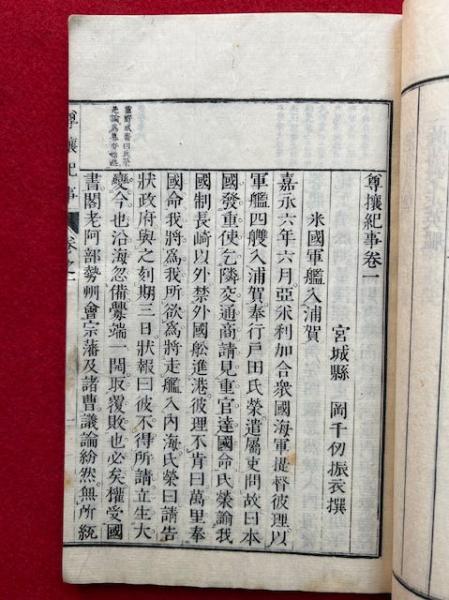 尊攘紀事卷一
宮城縣 岡千仞振衣撰
米國軍艦入浦賀
嘉永六年六月亞米利加合衆國海軍提督彼理以
軍艦四艘入浦賀奉行戶田氏榮遣屬吏問故曰本
國發重使乞隣交通商請見重官達國命氏榮諭我
國制長崎以外禁外國舩進港彼理不肯曰萬里奉
國命我將爲我所欲爲將走艦入內海氏榮曰請告
狀政府與之刻期三日狀報曰彼不得所請立生大
變今也沿海忽備釁端一開取覆敗也必矣權受國
書閣老阿部勢州會宗藩及諸曹議論紛然無所統
尊攘紀事 卷之一
一